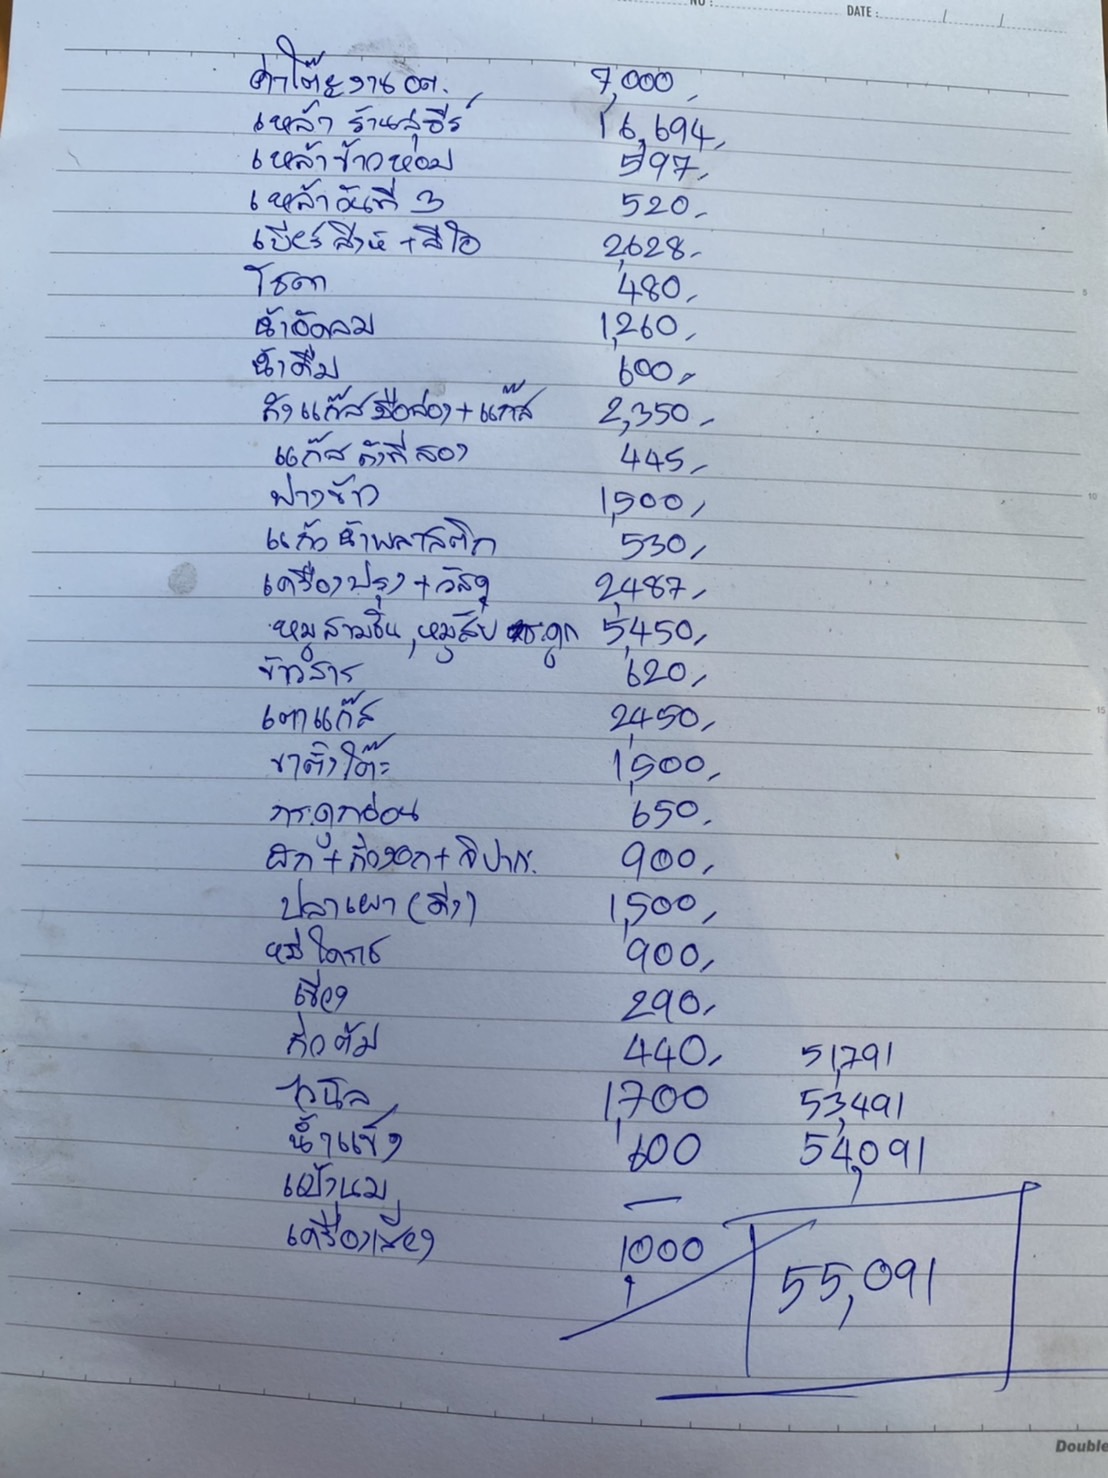 NO :
DATE : / /
ค่าโต๊ะงาน อต. 7,000,
เหล้า ร้านสุธีร์ 16,694,
เหล้าข้าวหอม 597,
เหล้าวันที่ 3 520,
เบียร์สิงห์ + ลีโอ 2,628,
โซดา 480,
น้ำอัดลม 1,260,
น้ำดื่ม 600,
ถังแก๊สมือสอง + แก๊ส 2,350,
แก๊สถังที่สอง 445,
ฟางข้าว 1,500,
แก้วน้ำพลาสติก 530,
เครื่องปรุง + วัสดุ 2,487,
หมูสามชั้น, หมูสับ กระดูก 5,450,
ข้าวสาร 620,
เตาแก๊ส 2,450,
ขาตั้งโต๊ะ 1,500,
กระดูกอ่อน 650,
ผัก + ถั่วงอก + จิปาถะ 900,
ปลาเผา (ผึ้ง) 1,500,
หมี่โคราช 900,
เขียง 290,
ถั่วต้ม 440, 51,791
ไวนิล 1,700 53,491
น้ำแข็ง 600 54,091
เป้านม —
เครื่องเสียง 1,000
55,091
Double